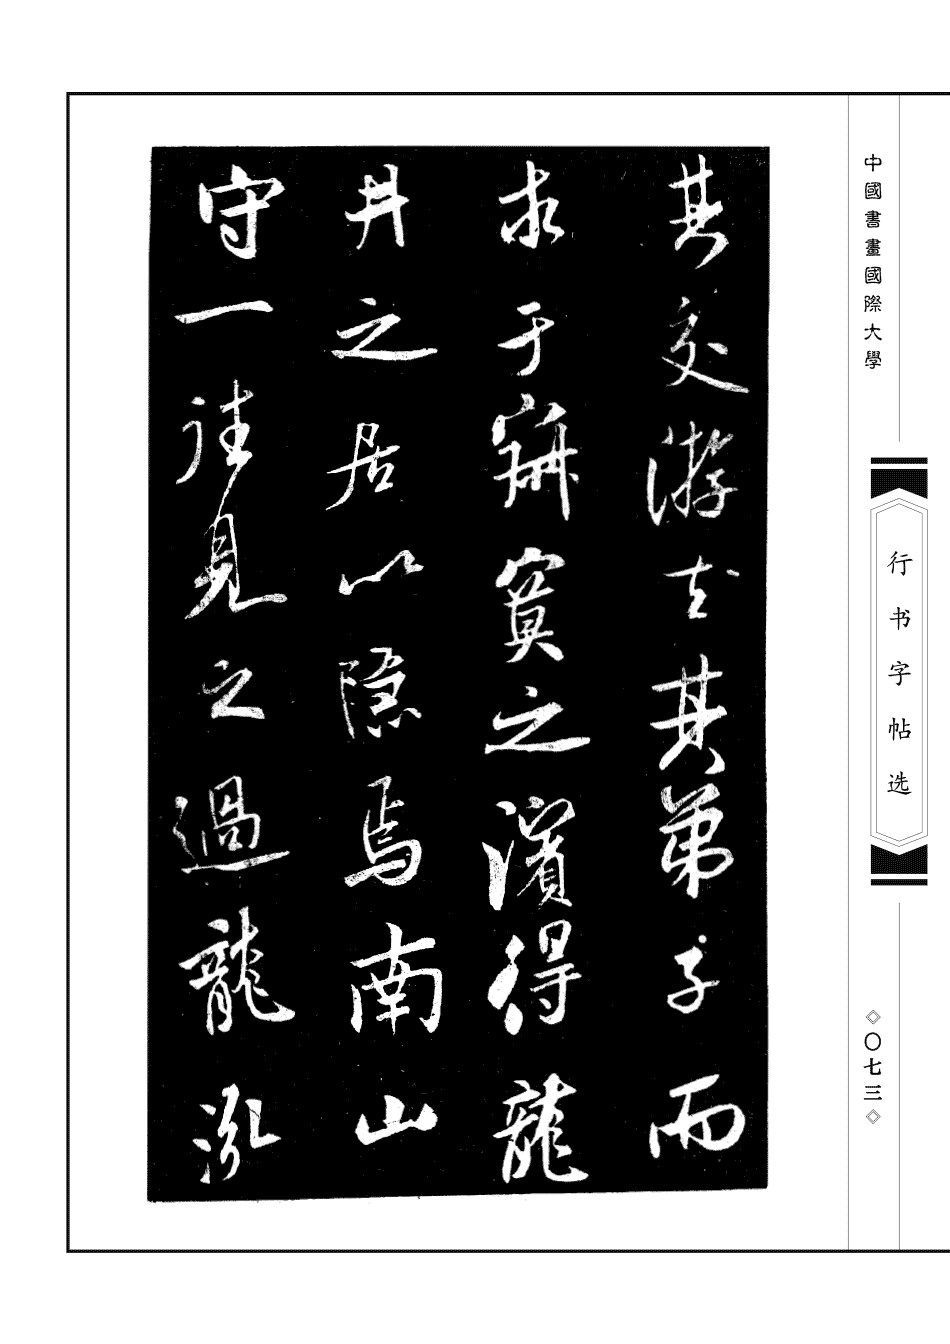 中國書畫國際大學
行书字帖选
◇〇七三◇
其交游去其弟子而
求于寂寞之濱得龍
井之居以隱焉南山
守一往見之過龍泓